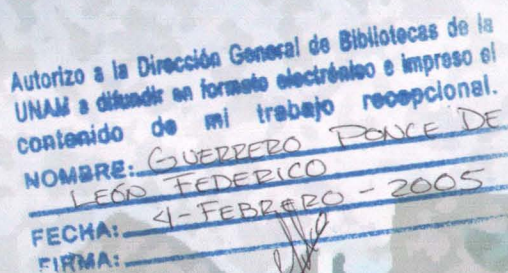 Autorizo a la Dirección General de Bibliotecas de la
UNAM a difundir en formato electrónico e impreso el
contenido de mi trabajo recepcional.
NOMBRE: GUERRERO PONCE DE
LEÓN FEDERICO
FECHA: 4-FEBRERO-2005
FIRMA: